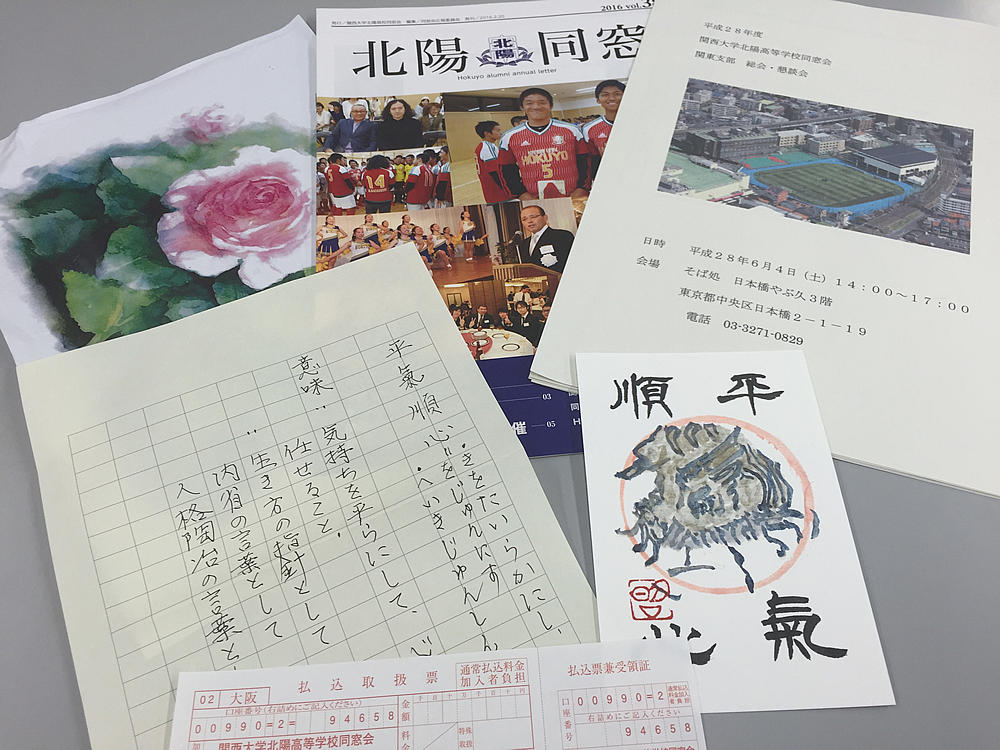 2016 vol.3
発行/関西大学北陽高校同窓会
北陽 北陽 同窓
Hokuyo alumni annual letter
HOKUYO
5
14
03
催 05
平成28年度
関西大学北陽高等学校同窓会
関東支部 総会・懇談会
日時 平成28年6月4日(土)14:00〜17:00
会場 そば処 日本橋やぶ久3階
東京都中央区日本橋2-1-19
電話 03-3271-0829
平氣順心:・きをたいらかにし、
心をじゅんにす
・へいきじゅんしん
意味:気持ちを平らにして、
任せること。
:生き方の指針として
内省の言葉として
人格陶冶の言葉と
平
氣
順
心
02 大阪
払込取扱票
通常払込料金
加入者負担
口座番号(右詰めにご記入ください)
00990=2= 94658
金額
千百十万千百十円
加
関西大学北陽高等学校同窓会
料金
特殊
取扱
払込票兼受領証
口座番号
00990=2
通常払込
料金加入
者負担
右詰めにご記入ください
94658